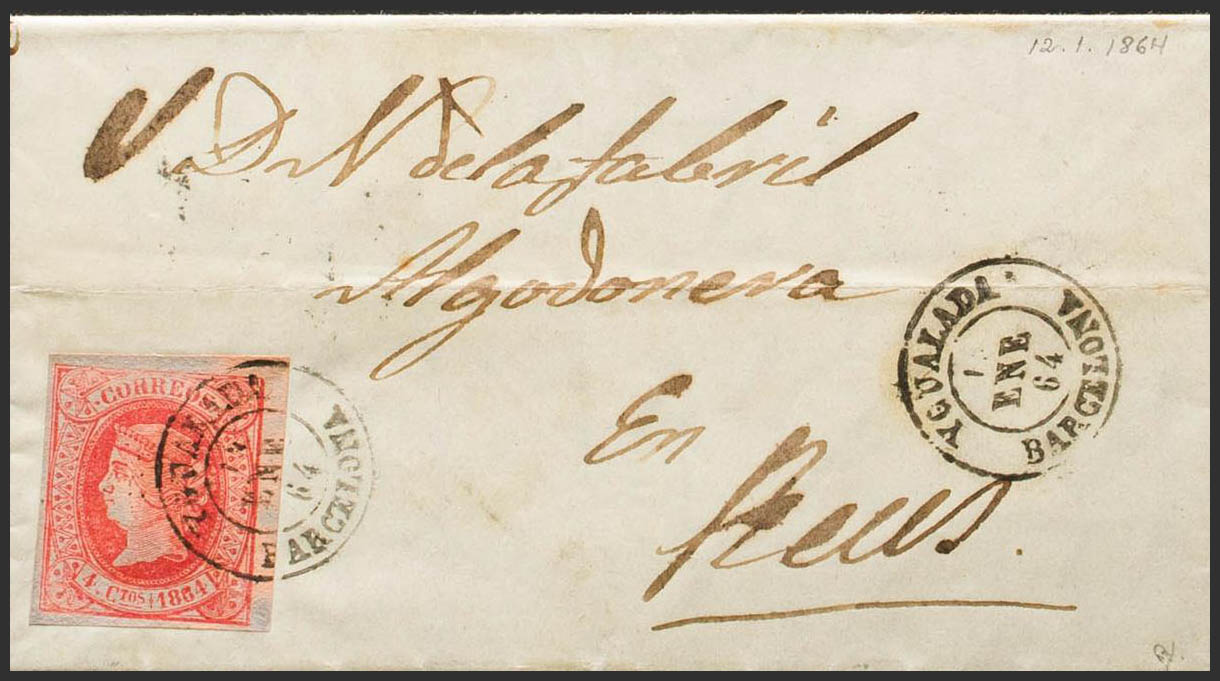 12.1.1864
de la fabril
Algodonera
En
Reus.
YGUALADA
ENE
64
BARCELONA
CORREOS
4 CTOS 1864
64
BARCELONA